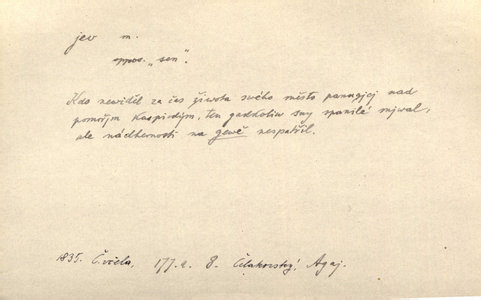 jev m.
oppos. „sen".
Kdo newiděl za čas žiwota swého město panugjcj nad
pomořjm Kaspickým, ten gadkoliw sny spanilé mjwal,
ale nádhernosti na gewě nespatřil.
1835. Č. včela, 177. a. 8. Čelakovský, Agaj.